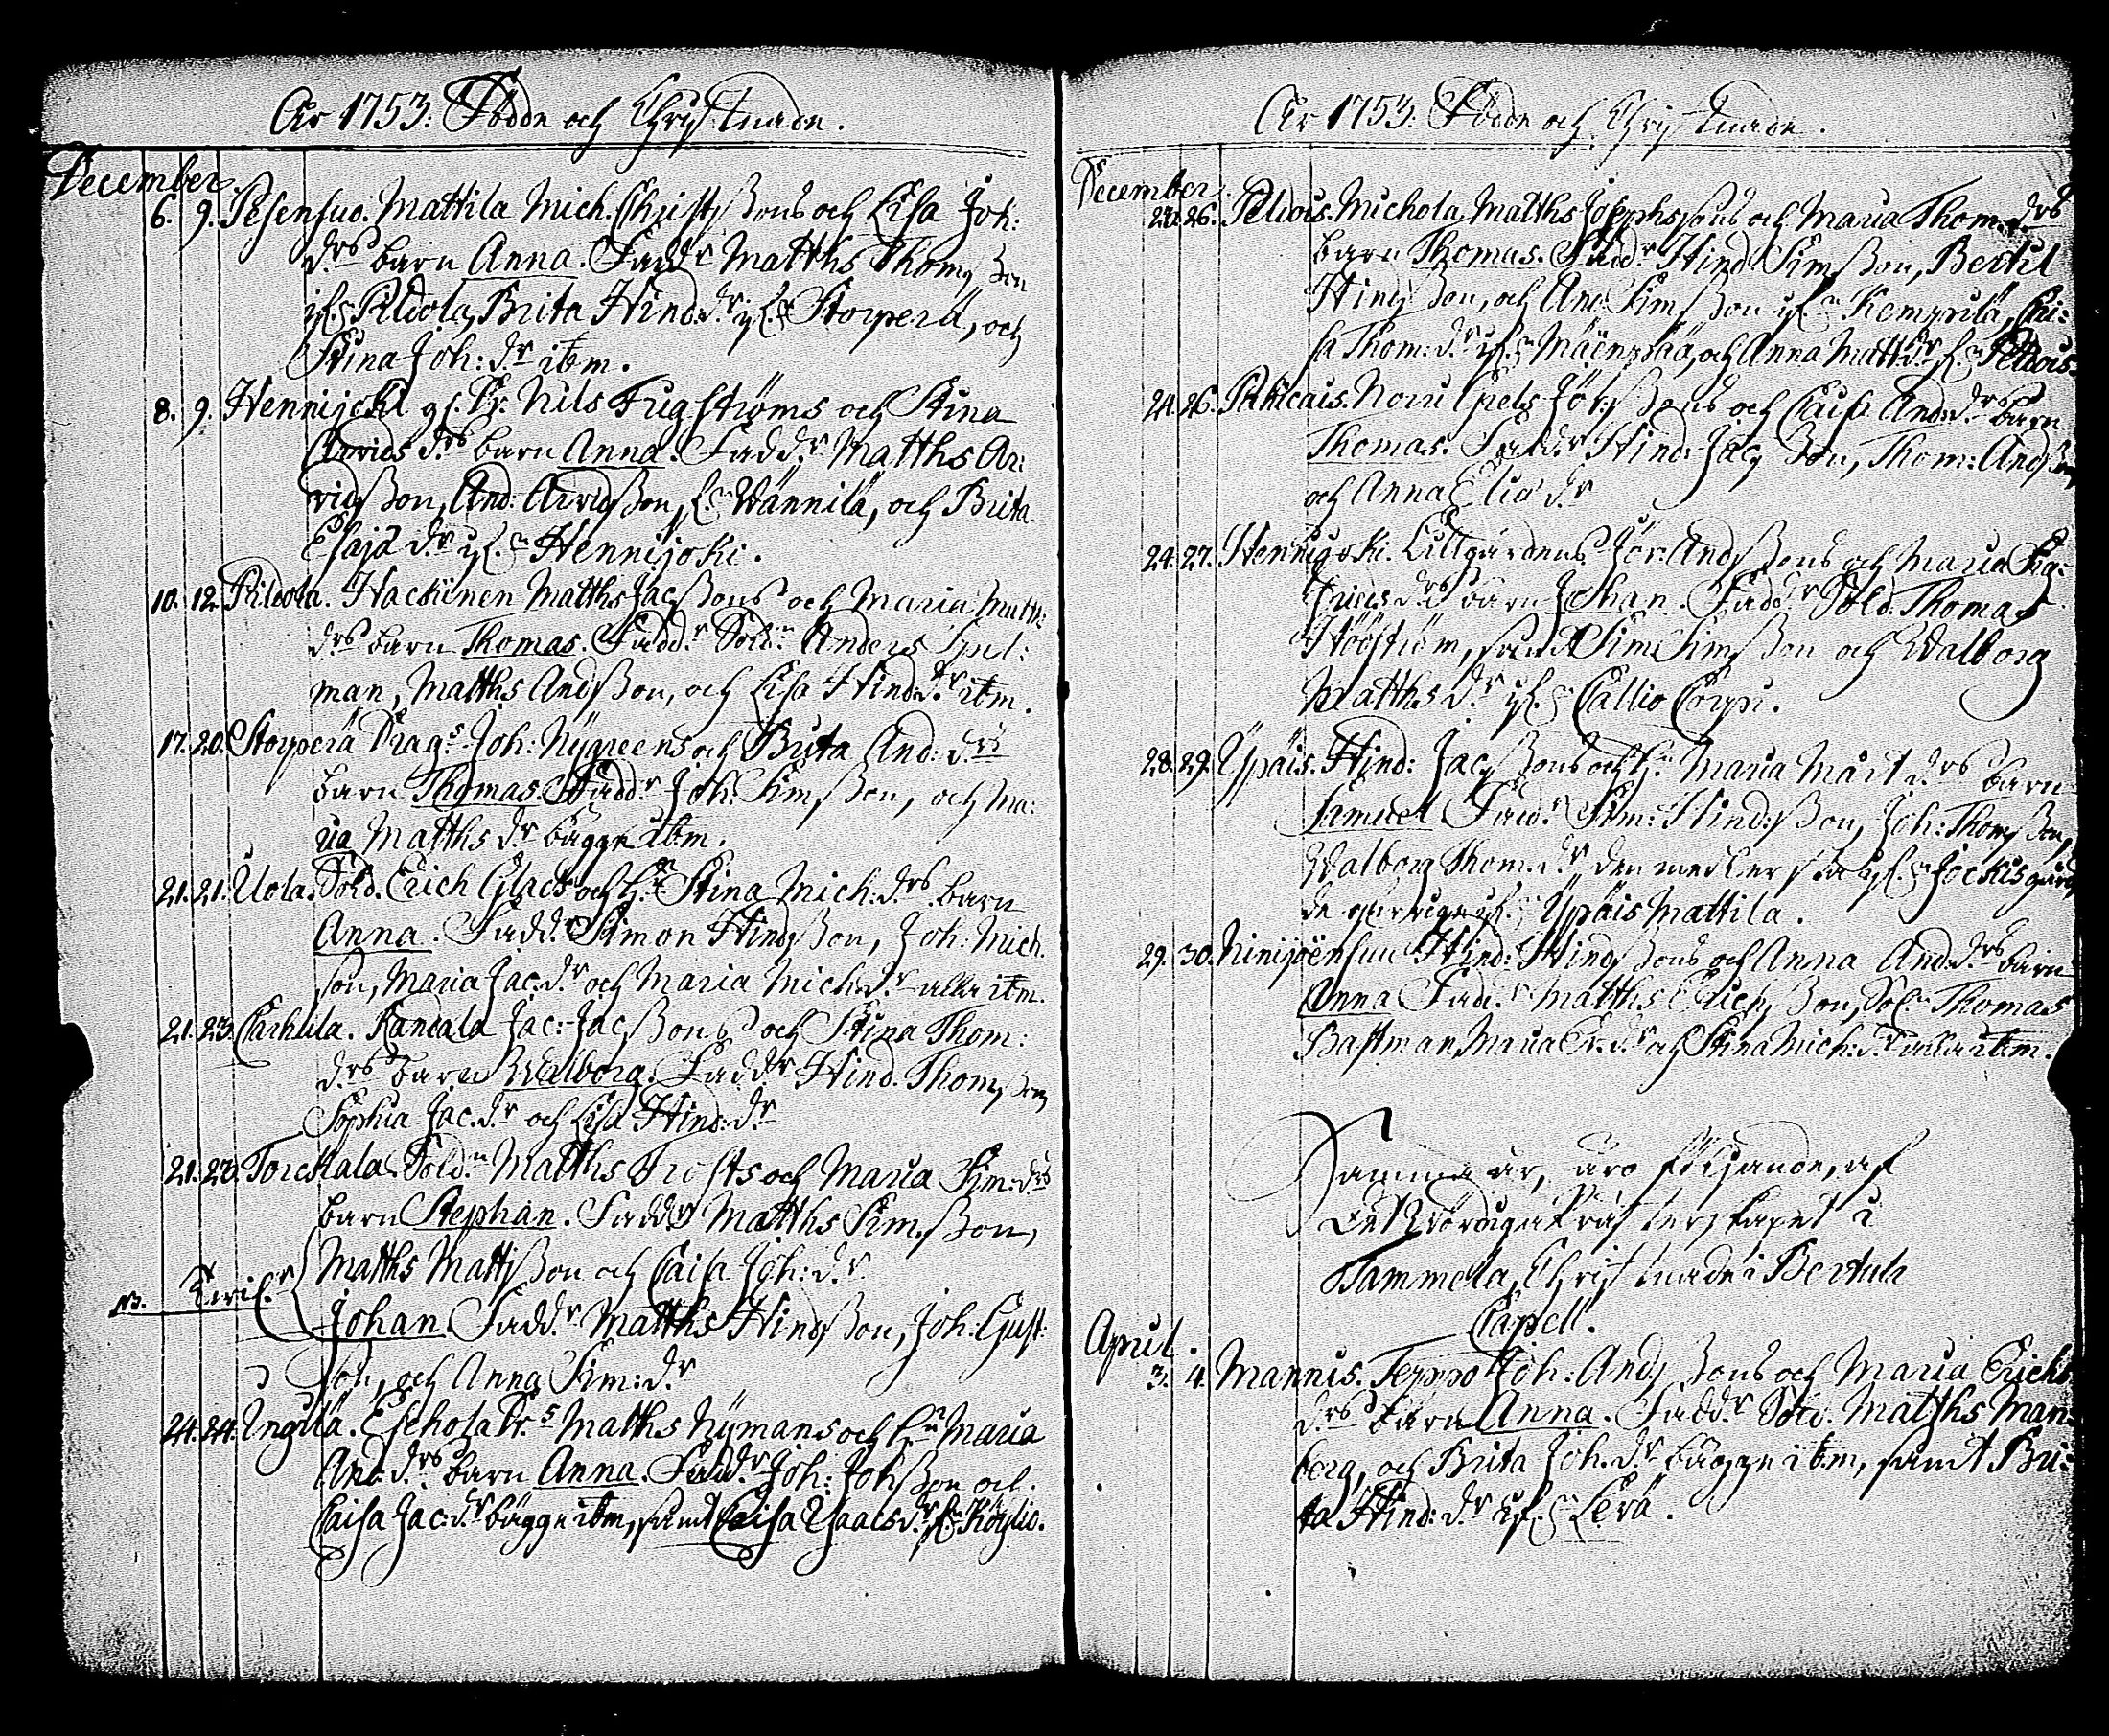 År 1753: Födde och Christnade.
December
6. 9. Pesensuo. Mattila Mich. Christsons och Lisa Joh:
drs barn Anna. Fadd.r Matths Thomsson
ifr. Pildola, Brita Hind: dr ifr. Storperä, och
Stina Joh: dr itm.
8. 9. Hennijoki Nils Fugströms och Stina
Arvids drs barn Anna. Fadd.r Matths Ar:
vidsson, And: Arvidsson, fr. Wännilä, och Brita
Esaja dr ifr. Hennijoki.
10. 12. Pildola. Hackinen Matths Jacssons och Maria Matth:
drs barn Thomas. Fadd.r Sold.n Anders Spel:
man, Matths Andsson, och Lisa Hind: dr itm.
17. 20. Storperä Drag.s Joh: Nygreens och Brita And: drs
barn Thomas. Fadd.r Joh: Simsson, och Ma:
ria Matths dr bägge itm.
21. 21. Uola. Sold. Erich Glads och h. Stina Mich: drs barn
Anna. Fadd.r Simon Hindsson, Joh: Mich.
son, Maria Jac: dr och Maria Mich: dr alla itm.
21. 23. Carhula. Jac: Jacssons och Stina Thom:
drs barn Walborg. Fadd.r Hind. Thomsson
Sophia Jac. dr och Lisa Hind: dr
21. 23. Torckala Sold.n Matths Frosts och Maria Sim: drs
barn Stephan. Fadd.r Matths Simsson,
Matths Mattsson och Caisa Joh: dr
NB. Johan. Fadd.r Matths Hindsson, Joh: Gust:
son, och Anna Sim: dr
24. 24. Ingilä. Eskola Dr.s Matths Nymans och h. Maria
And: drs barn Anna. Fadd.r Joh: Johsson och
Caisa Jac: dr bägge itm, samt Caisa Isaacs dr fr. Köylio.
År 1753: Födde och Christnade.
December
26. Peldois. Michola Matths Josephssons och Maria Thom: drs
barn Thomas. Fadd.r Hind Simsson, Bertil
Hindsson, och And Simsson ifr. Kempilä, Cai:
sa Thom: dr ifr. Mäenpää, och Anna Matt: dr fr. Peldois.
24. 26. Palicais. Nouspels Jör:ssons och Caisa And: drs barn
Thomas. Fadd.r Hind: Jacsson, Thom: Andsson
och Anna Elia dr
24. 27. Hennijoki. Lillgårdens Jör: Andssons och Maria Sig:
frieds drs barn Johan. Fadd.r Sold. Thomas
Höckström, samt Sim Simsson och Walborg
Matths dr ifr. Callio Torp.
28. 29. Ypäis. Hind: Jacssons och h. Maria Mårt drs barn
Samuel Fadd.r Sim: Hind:sson, Joh: Thomsson,
Walborg Thom. dr den medlersta ifr. Jockis gård,
de öfrige ifr. Ypäis Mattila.
29. 30. Ninijoensuu Hind: Hindssons och Anna And: drs barn
Anna Fadd.r Matths Erichsson, Sol. Thomas
Bastman, Maria Er. dr och Stina Mich: dr alla itm.
Samma år, äro följande, af
Det Wördiga Prästerskapet i
Tammela, Christnade i Bertula
Capell.
April.
3. 4. Mannis. Teppo Joh: Andssons och Maria Erichs
drs barn Anna. Fadd.r Sold. Matths Man:
berg, och Brita Joh. dr bägge itm, samt Bri:
ta Hind: dr ifr. Lerä.